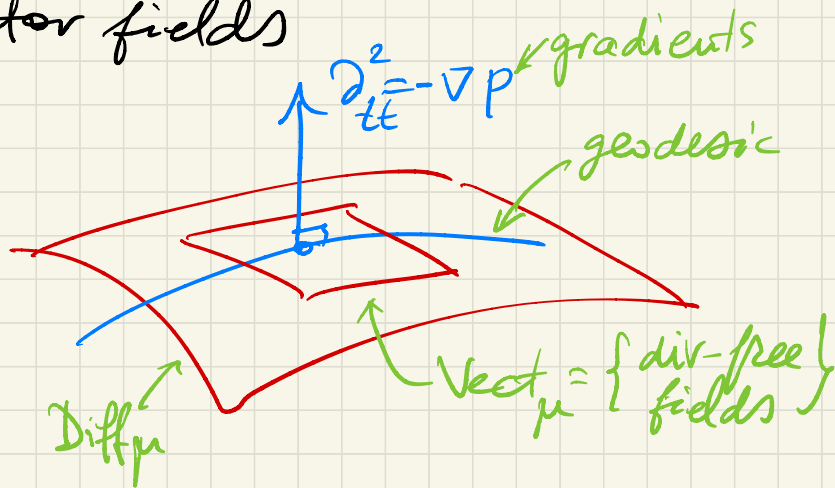 tor fields
∂²_tt = -∇p
gradients
geodesic
Vect_μ = { div-free fields }
Diff_μ